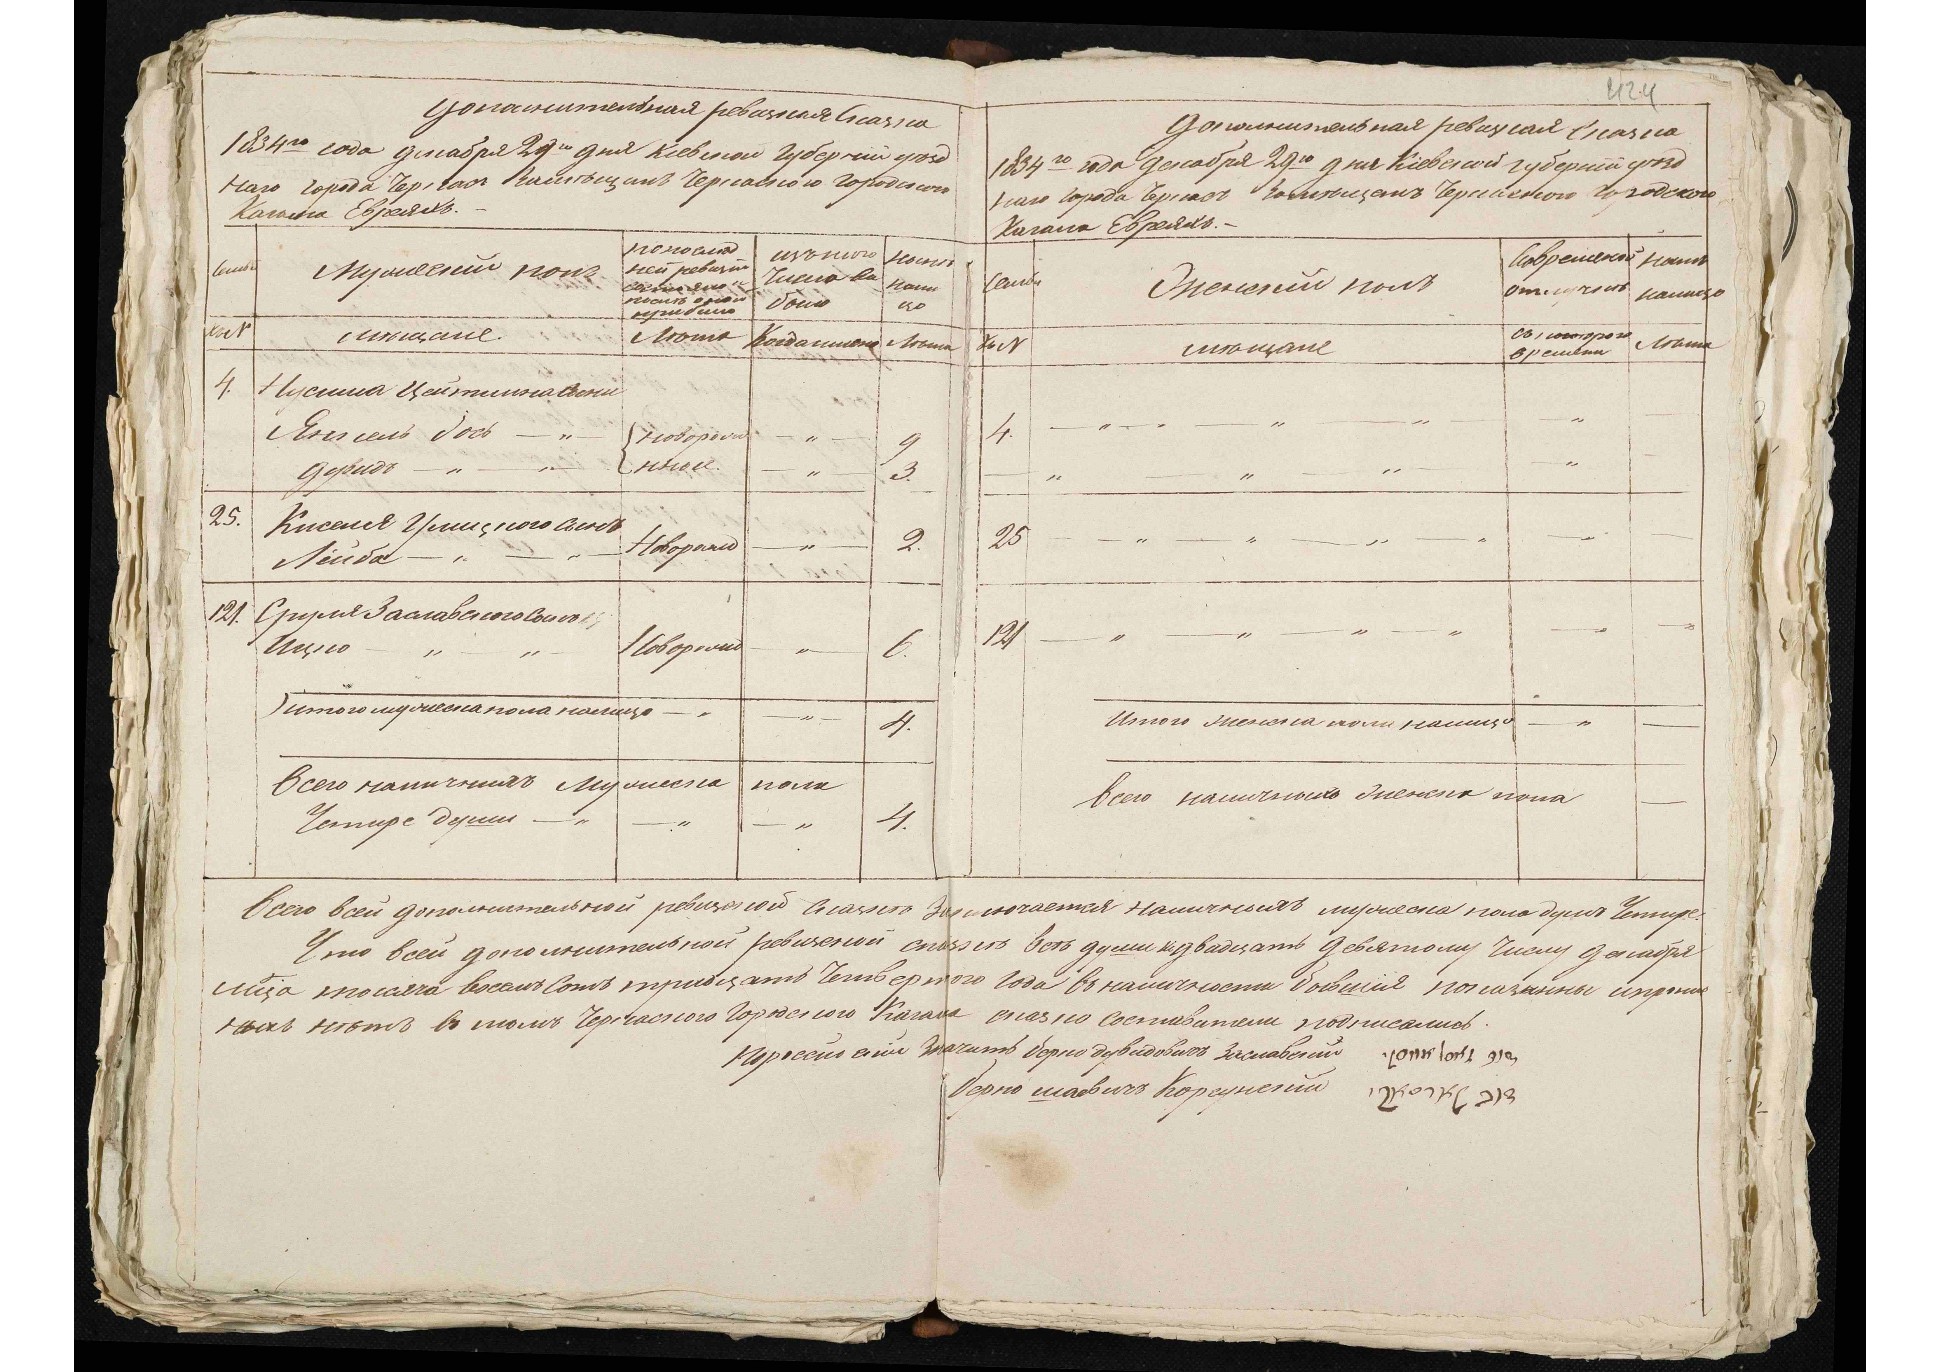 Дополнительная ревизская сказка
1834го года декабря 29го дня Киевской Губернии уезд
наго города Черкас мещанъ Черкаского Городского
Кагала Евреяхъ. –
Семьи
Мужеский полъ
по послед
ней ревизіи
состояло и
после оной
прибыло
изъ того
числа вы
было
ныне
нали
цо
№
мещане.
Лета
Когда именно
Лета
4. Нусима Цейтлина сыни
Янкель Іось — „ — новорожд — „ — 9
Дувидъ — „ — „ — нные. — „ — 3.
25. Киселя Грицкого сынъ
Лейба — „ — „ — Новорожд — „ — 2.
121. Сруля Заславского сынъ
Ицко — „ — „ — Новорожд — „ — 6.
Итого мужеска пола налицо — „ — „ — 4.
Всего наличнихъ Мужеска пола
Четыре души — „ — „ — „ 4.
424
Дополнительная ревизская сказка
1834го года декабря 29го дня Кіевской губерніи уезд
наго города Черкас мещанъ Черкаского Городского
Кагала Евреяхъ. –
Семьи
Женский полъ
Временной
отлучке
ныне
налицо
№
мещане
съ которого
времени
Лета
4. — „ — „ — „ — „ — „ —
— „ — „ — „ — „ —
25 — „ — „ — „ — „ — „ —
121 — „ — „ — „ — „ — „ — „
Итого женска пола налицо — „ —
Всего наличныхъ женска пола —
Всего всей дополнительной ревизской сказке Заключается наличныхъ мужеска пола душъ Четыре.
Что всей дополнительной ревизской сказке все души к двадцать девятому Числу декабря
м͠ца тысяча восемъ сотъ тридцать Четвертого года въ наличности бывшія показанны и пропис
ныхъ нетъ въ томъ Черкаского Городского Кагала сказко составители подписались.
по россійски Значитъ Берко Дувидовичъ Заславский
Берко Корсунский